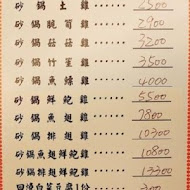 砂鍋土雞……2500
砂鍋脆筍雞……2900
砂鍋菇菇雞……3200
砂鍋竹笙雞……3500
砂鍋魚鰾雞……4000
砂鍋鮮鮑雞……5500
砂鍋魚翅雞……7800
砂鍋排翅雞……10300
砂鍋魚翅鮮鮑雞……10800
砂鍋排翅鮮鮑雞……13300
回燒白菜豆腐1份……300